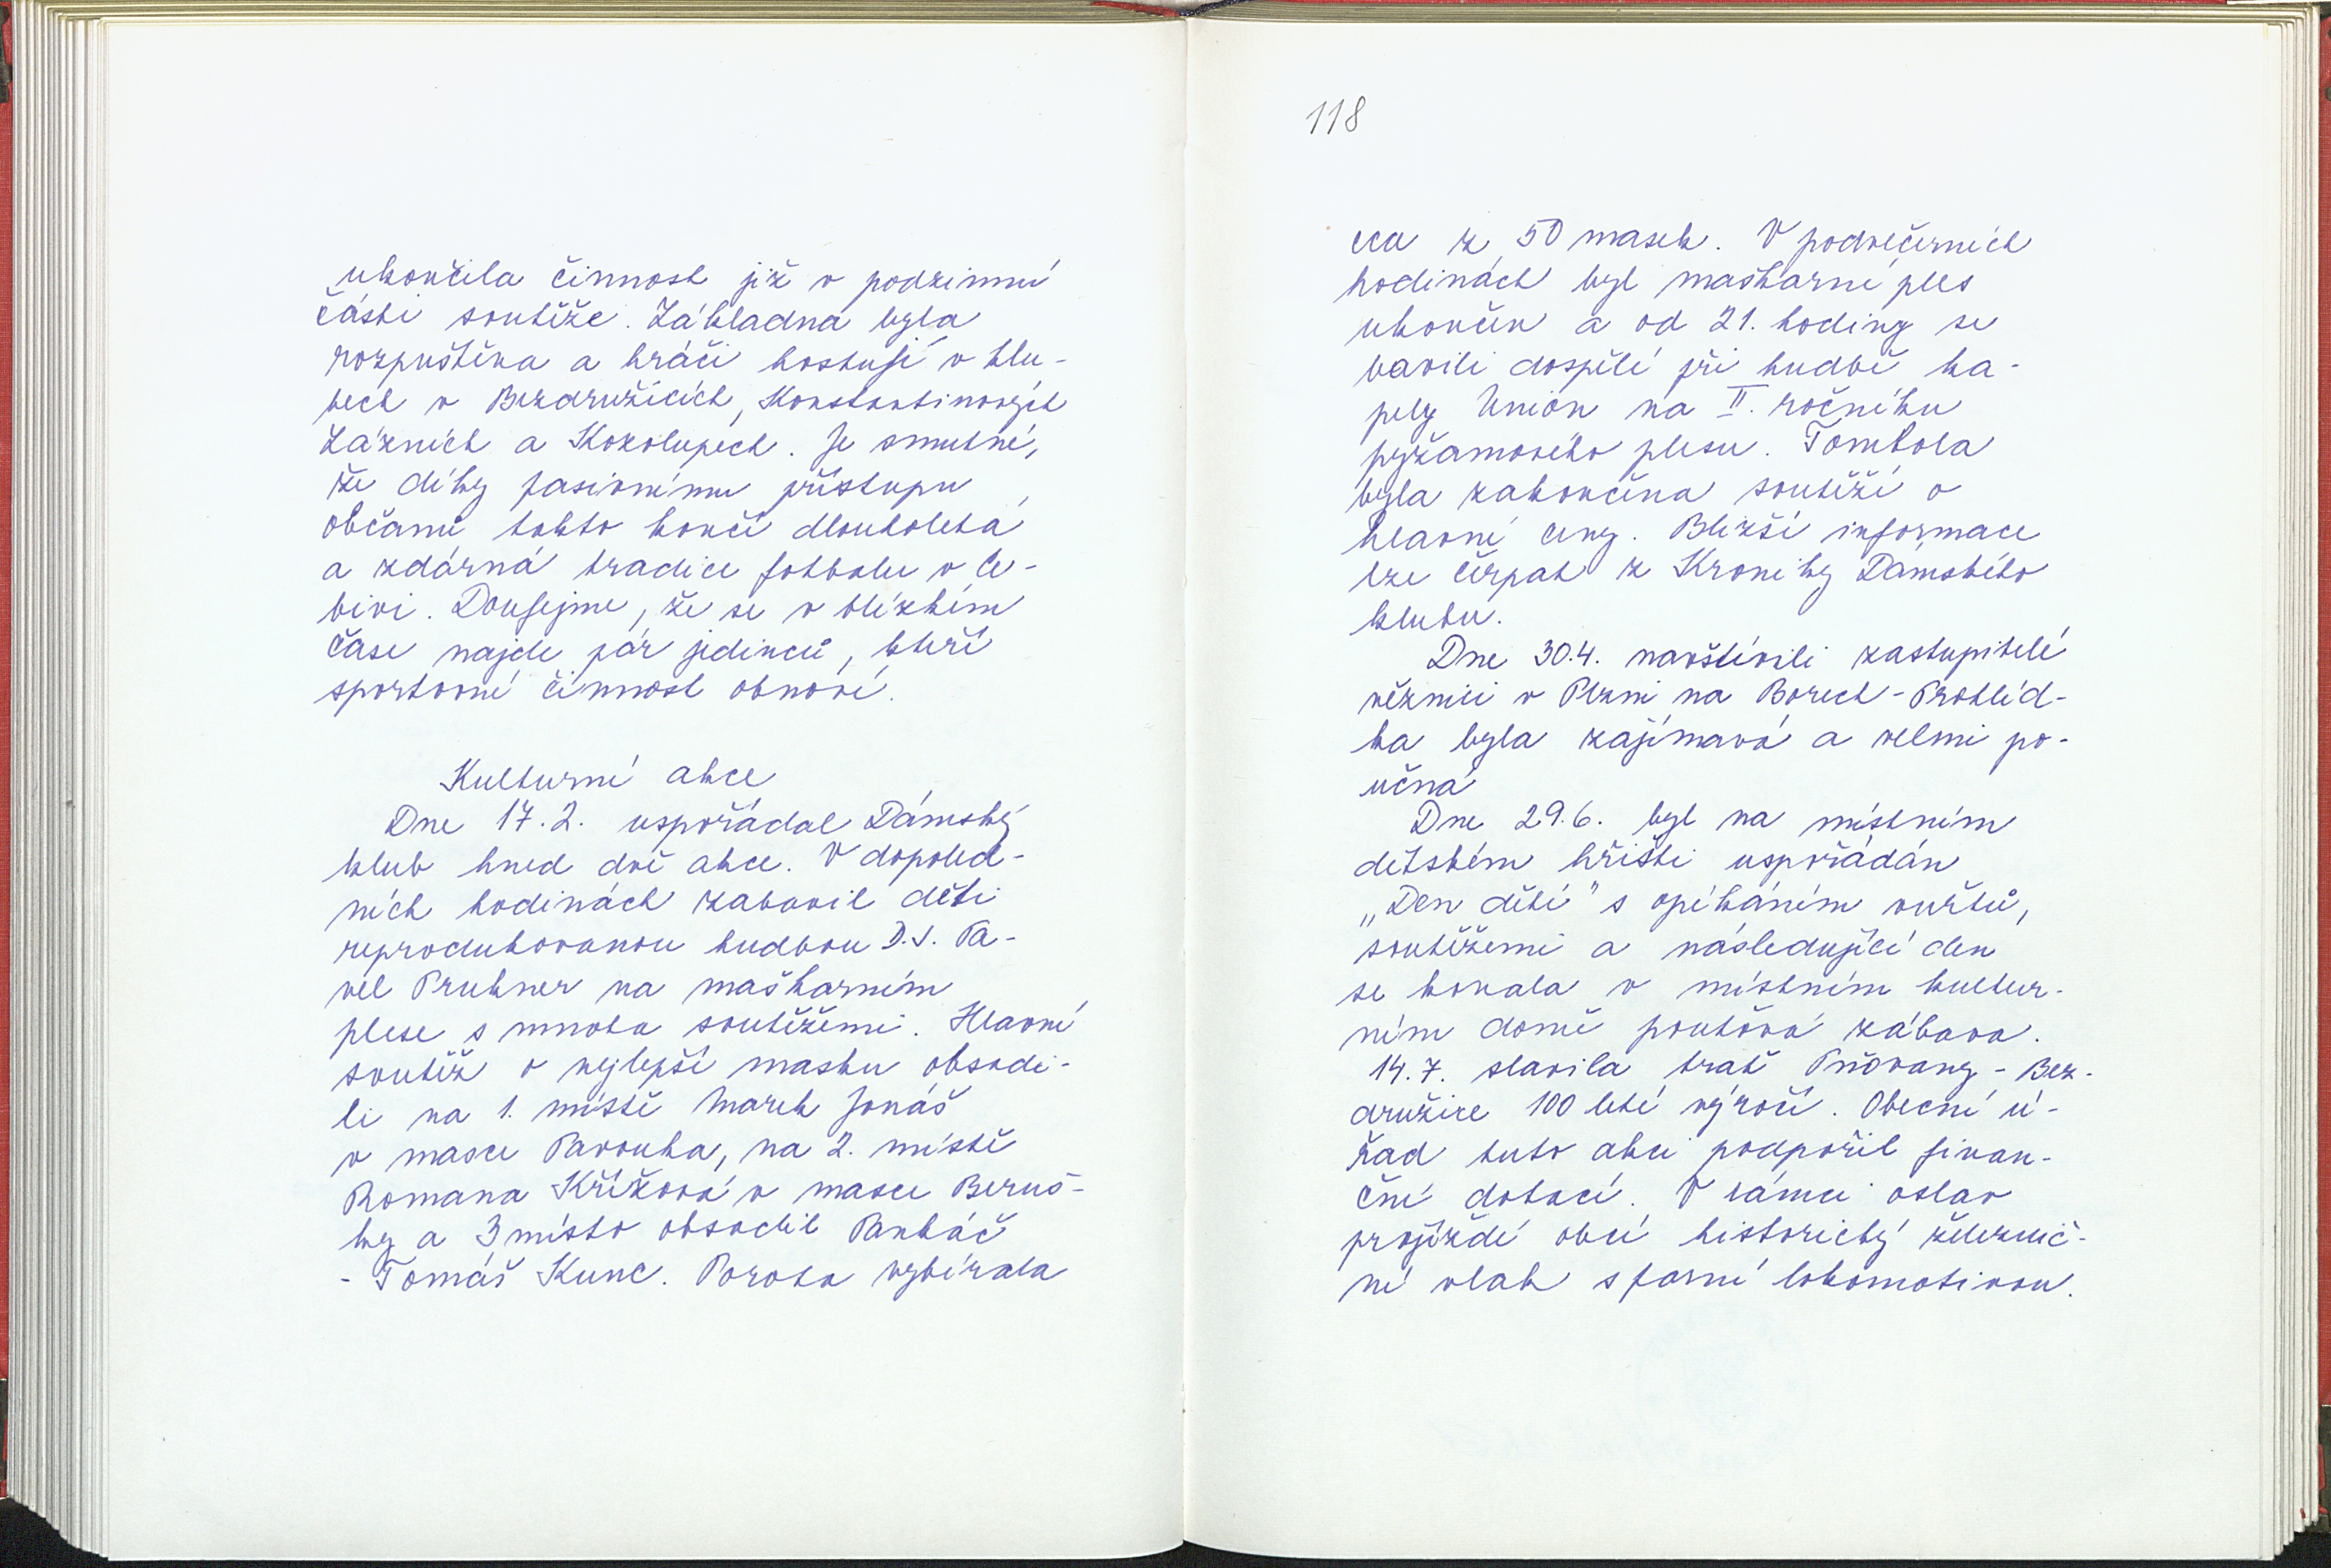 ukončila činnost již v podzimní
části soutěže. Základna byla
rozpuštěna a hráči hostují v klu-
bech v Bezdružicích, Konstantinových
Lázních a Kokolupech. Je smutné,
že díky pasivnímu přístupu
občanů takto končí dlouholetá
a zdárná tradice fotbalu v Ce-
bivi. Doufejme, že se v blízkém
čase najde pár jedinců, kteří
sportovní činnost obnoví.
Kulturní akce
Dne 17.2. uspořádal Dámský
klub hned dvě akce. V dopoled-
ních hodinách zabavil děti
reprodukovanou hudbou D.J. Pa-
vel Prukner na maškarním
plese s mnoha soutěžemi. Hlavní
soutěž o nejlepší masku obsadi-
li na 1. místě Marek Jonáš
v masce Pavouka, na 2. místě
Romana Křížová v masce Beruš-
ky a 3 místo obsadil Pankáč
- Tomáš Kunc. Porota vybírala
118
cca z 50 masek. V podvečerních
hodinách byl maškarní ples
ukončen a od 21. hodiny se
bavili dospělí při hudbě ka-
pely Union na II. ročníku
pyžamového plesu. Tombola
byla zakončena soutěží o
hlavní ceny. Bližší informace
lze čerpat z Kroniky Dámského
klubu.
Dne 30.4. navštívili zastupitelé
věznici v Plzni na Borech - Prohlíd-
ka byla zajímavá a velmi po-
učná
Dne 29.6. byl na místním
dětském hřišti uspořádán
„Den dětí" s opékáním vuřtů,
soutěžemi a následující den
se konala v místním kultur-
ním domě pouťová zábava.
14.7. slavila trať Pňovany - Bez-
družice 100 leté výročí. Obecní ú-
řad tuto akci podpořil finan-
ční dotací. V rámci oslav
projíždí obcí historický železnič-
ní vlak s parní lokomotivou.